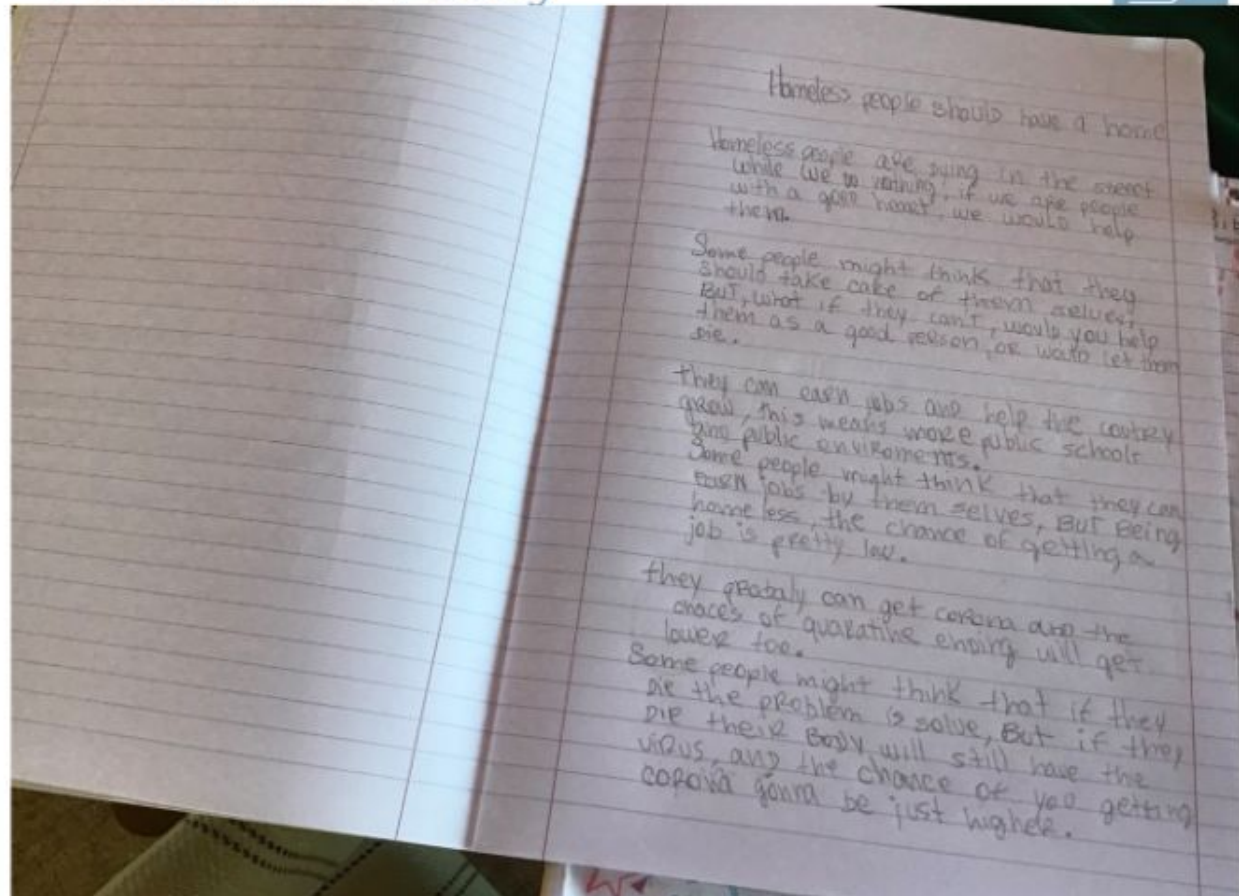 Homeless people should have a home
Homeless people are dying in the street
while we do nothing, if we are people
with a good heart, we would help
them.
Some people might think that they
should take cake of them selves,
But, what if they can't, would you help
them as a good person, or would let them
die.
they can earn jobs and help the coutry
grow, this means more public schools
and public enviroments.
Some people might think that they can
earn jobs by them selves, But Being
homeless, the chance of getting a
job is pretty low.
they probaly can get corona and the
chaces of quaratine ending will get
lower too.
Some people might think that if they
die the problem is solve, But if they
die their Body will still have the
virus, and the chance of you getting
corona gonna be just higher.